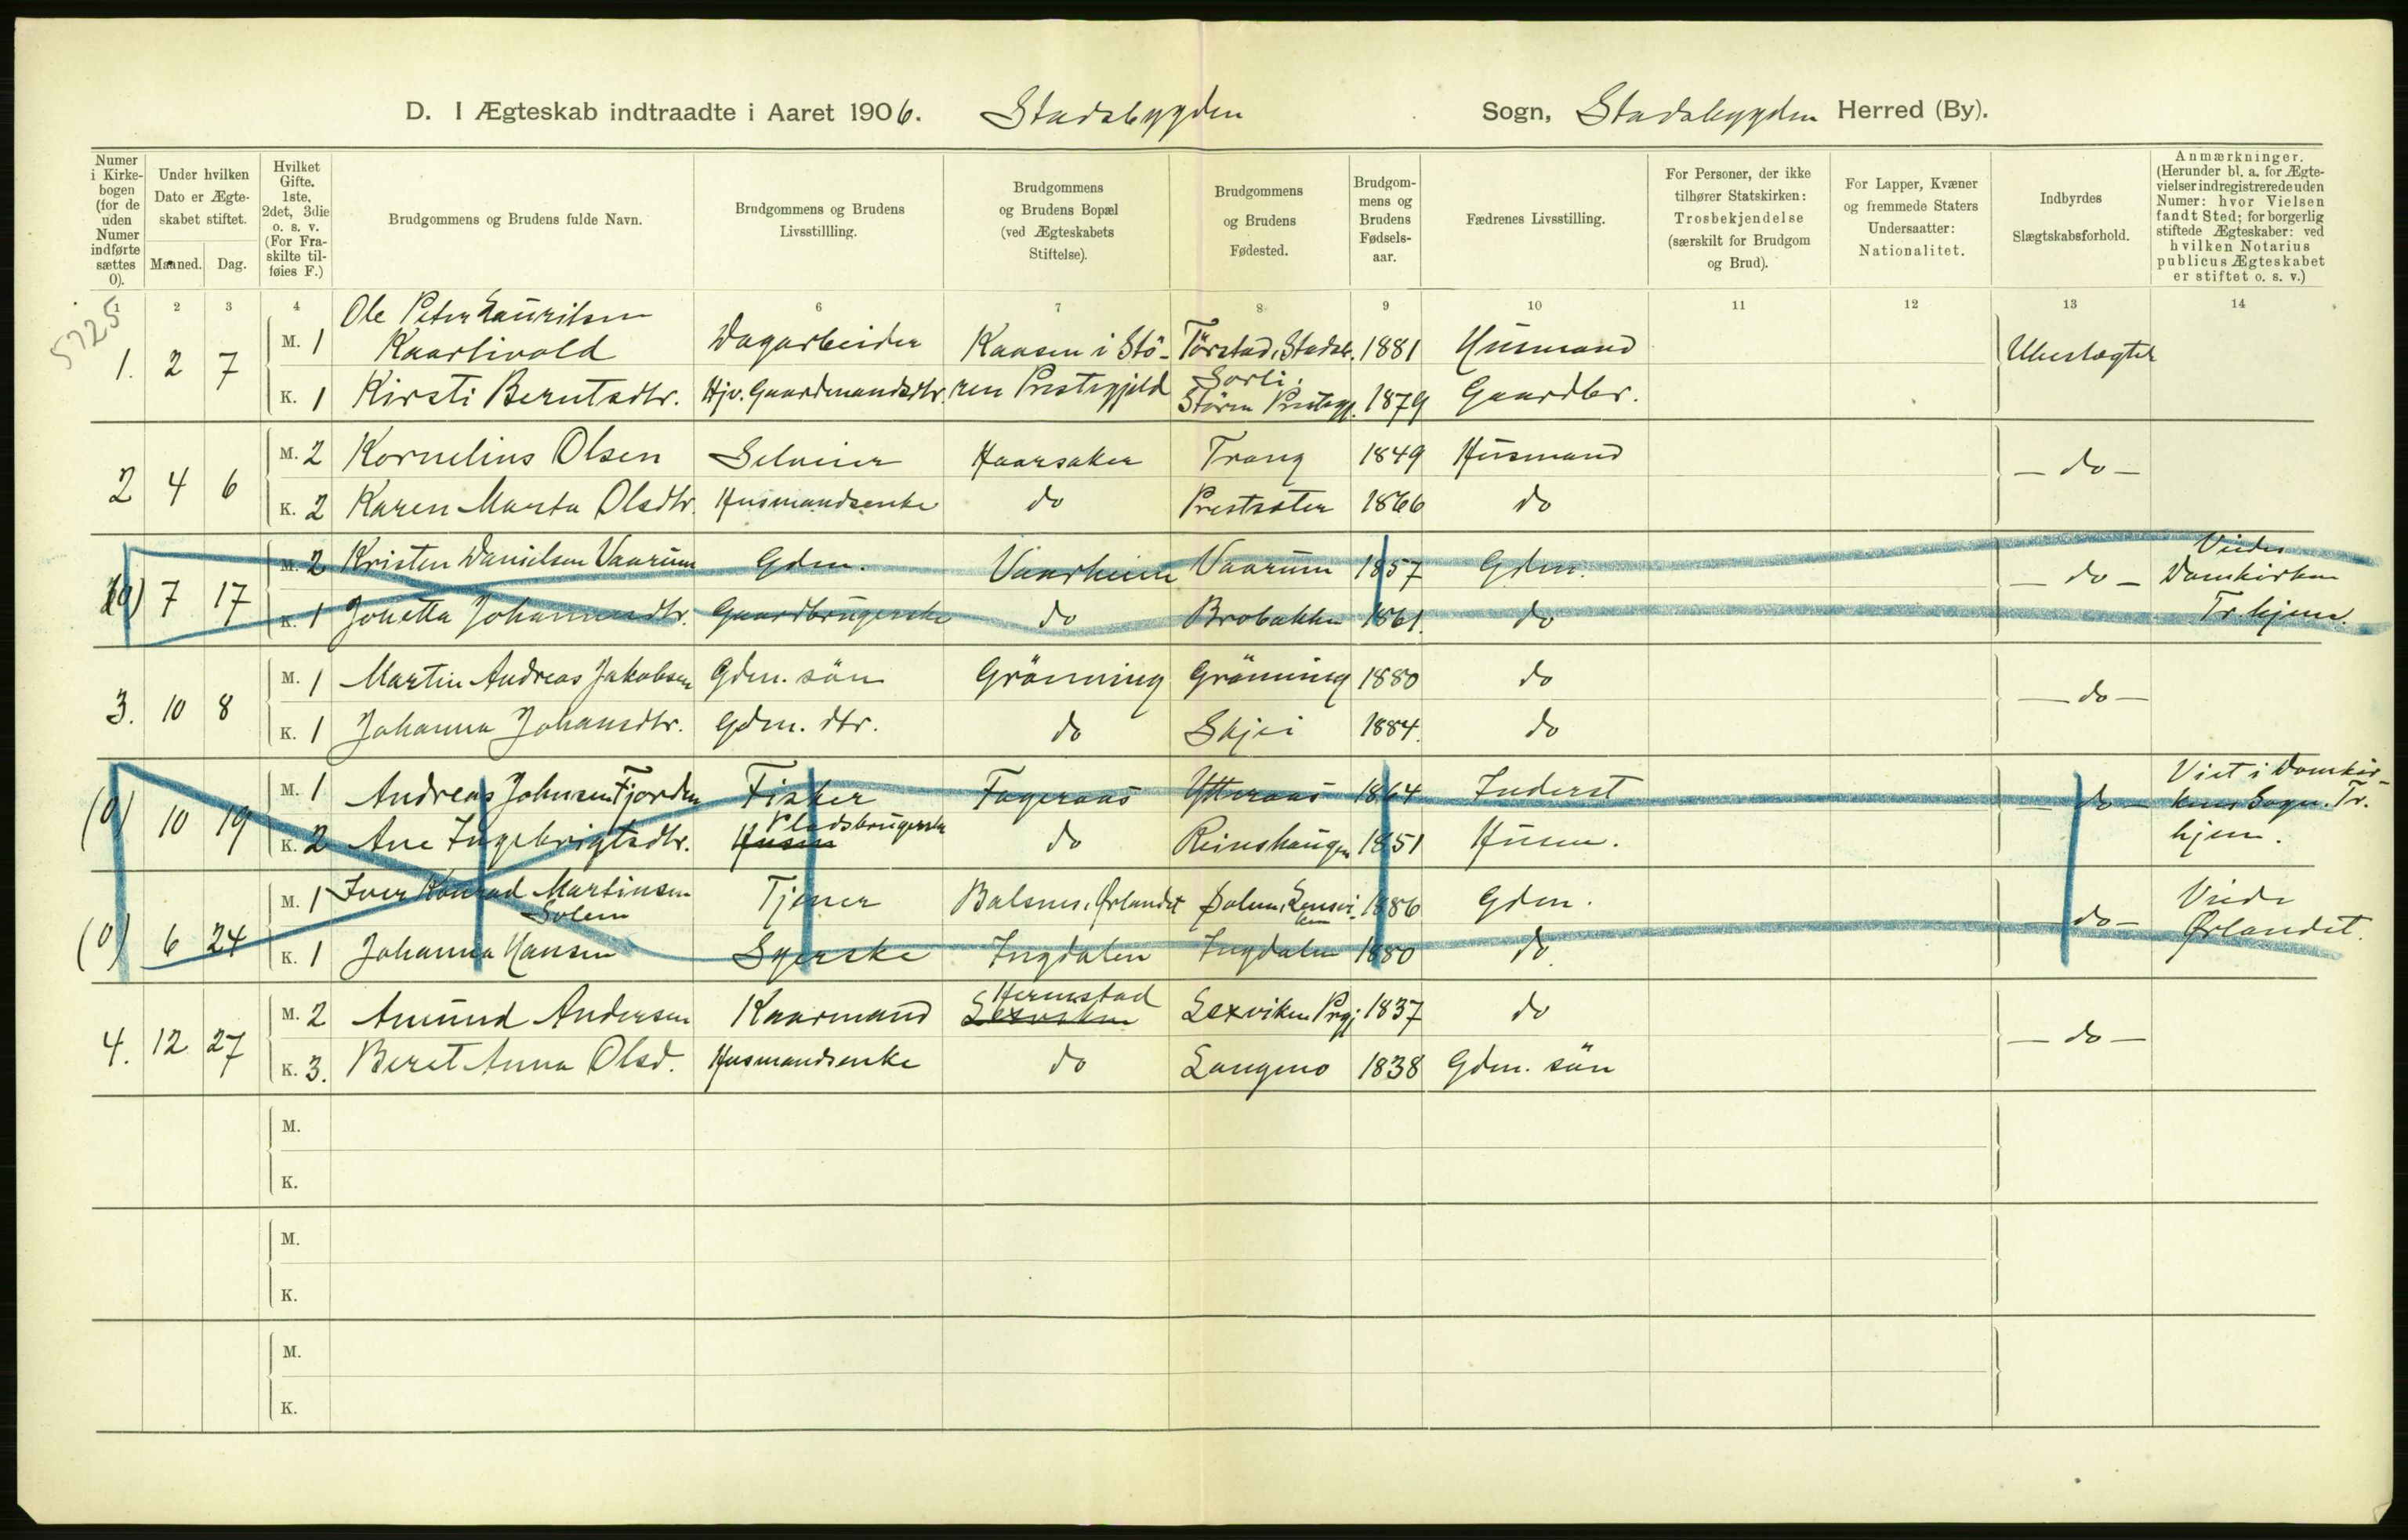 D. I Ægteskab indtraadte i Aaret 1906. Stadsbygden Sogn, Stadsbygden Herred (By).
Numer i Kirkebogen (for de uden Numer indførte sættes 0).
Under hvilken Dato er Ægteskabet stiftet.
Maaned. Dag.
Hvilket Gifte. 1ste, 2det, 3die o. s. v. (For Fraskilte tilføies F.)
Brudgommens og Brudens fulde Navn.
Brudgommens og Brudens Livsstillling.
Brudgommens og Brudens Bopæl (ved Ægteskabets Stiftelse).
Brudgommens og Brudens Fødested.
Brudgommens og Brudens Fødselsaar.
Fædrenes Livsstilling.
For Personer, der ikke tilhører Statskirken: Trosbekjendelse (særskilt for Brudgom og Brud).
For Lapper, Kvæner og fremmede Staters Undersaatter: Nationalitet.
Indbyrdes Slægtskabsforhold.
Anmærkninger. (Herunder bl. a. for Ægtevielser indregistrerede uden Numer: hvor Vielsen fandt Sted; for borgerlig stiftede Ægteskaber: ved hvilken Notarius publicus Ægteskabet er stiftet o. s. v.)
1 2 3 4 6 7 8 9 10 11 12 13 14
5725
1. 2 7 M. 1 Ole Peter Lauritsen Kaarlivold Dagarbeider Kaasen i Stö- Törstad, Stadsb. 1881 Husmand Ubeslægtet
K. 1 Kirsti Berntsdtr. Hjv. Gaardmandsdtr. ren Prestegjeld Sorli, Stören Prestegj. 1879 Gaardbr.
2 4 6 M. 2 Kornelius Olsen Selveier Haarsaker Trang 1849 Husmand — do —
K. 2 Karen Marta Olsdtr. Husmandsenke do Prestsæter 1866 do
(0) 7 17 M. 2 Kristen Danielsen Vaarum Gdm. Vaarheim Vaarum 1857 Gdm. — do — Viede Domkirken
K. 1 Johetta Johannesdtr. Gaardbrugerske do Brobakken 1861. do Tr.hjem.
3. 10 8 M. 1 Martin Andreas Jakobsen Gdm. sön Grönning Grönning 1880 do — do —
K. 1 Johanna Johansdtr. Gdm. dtr. do Skjei 1884. do
(0) 10 19 M. 1 Andreas Johnsen Fjorden Fisker Fageraas Ytteraas 1864 Inderst — do — Viet i Domkirkens Sogn. Tr.
K. 2 Ane Ingebrigtsdtr. Husm Pladsbrugerske do Reinshaugen 1851 Husm. hjem.
(0) 6 24 M. 1 Iver Konrad Martinsen Solem Tjener Balsnes, Ørlandet Solem, Lensviken 1886 Gdm. do — Viede
K. 1 Johanna Hansen Syerske Ingdalen Ingdalen 1880 do Ørlandet.
4. 12 27 M. 2 Amund Andersen Kaarmand Lexviken Hermstad Lexviken Prgj 1837 do — do —
K. 3. Beret Anna Olsd. Husmandsenke do Langmo 1838 Gdm. sön
M.
K.
M.
K.
M.
K.